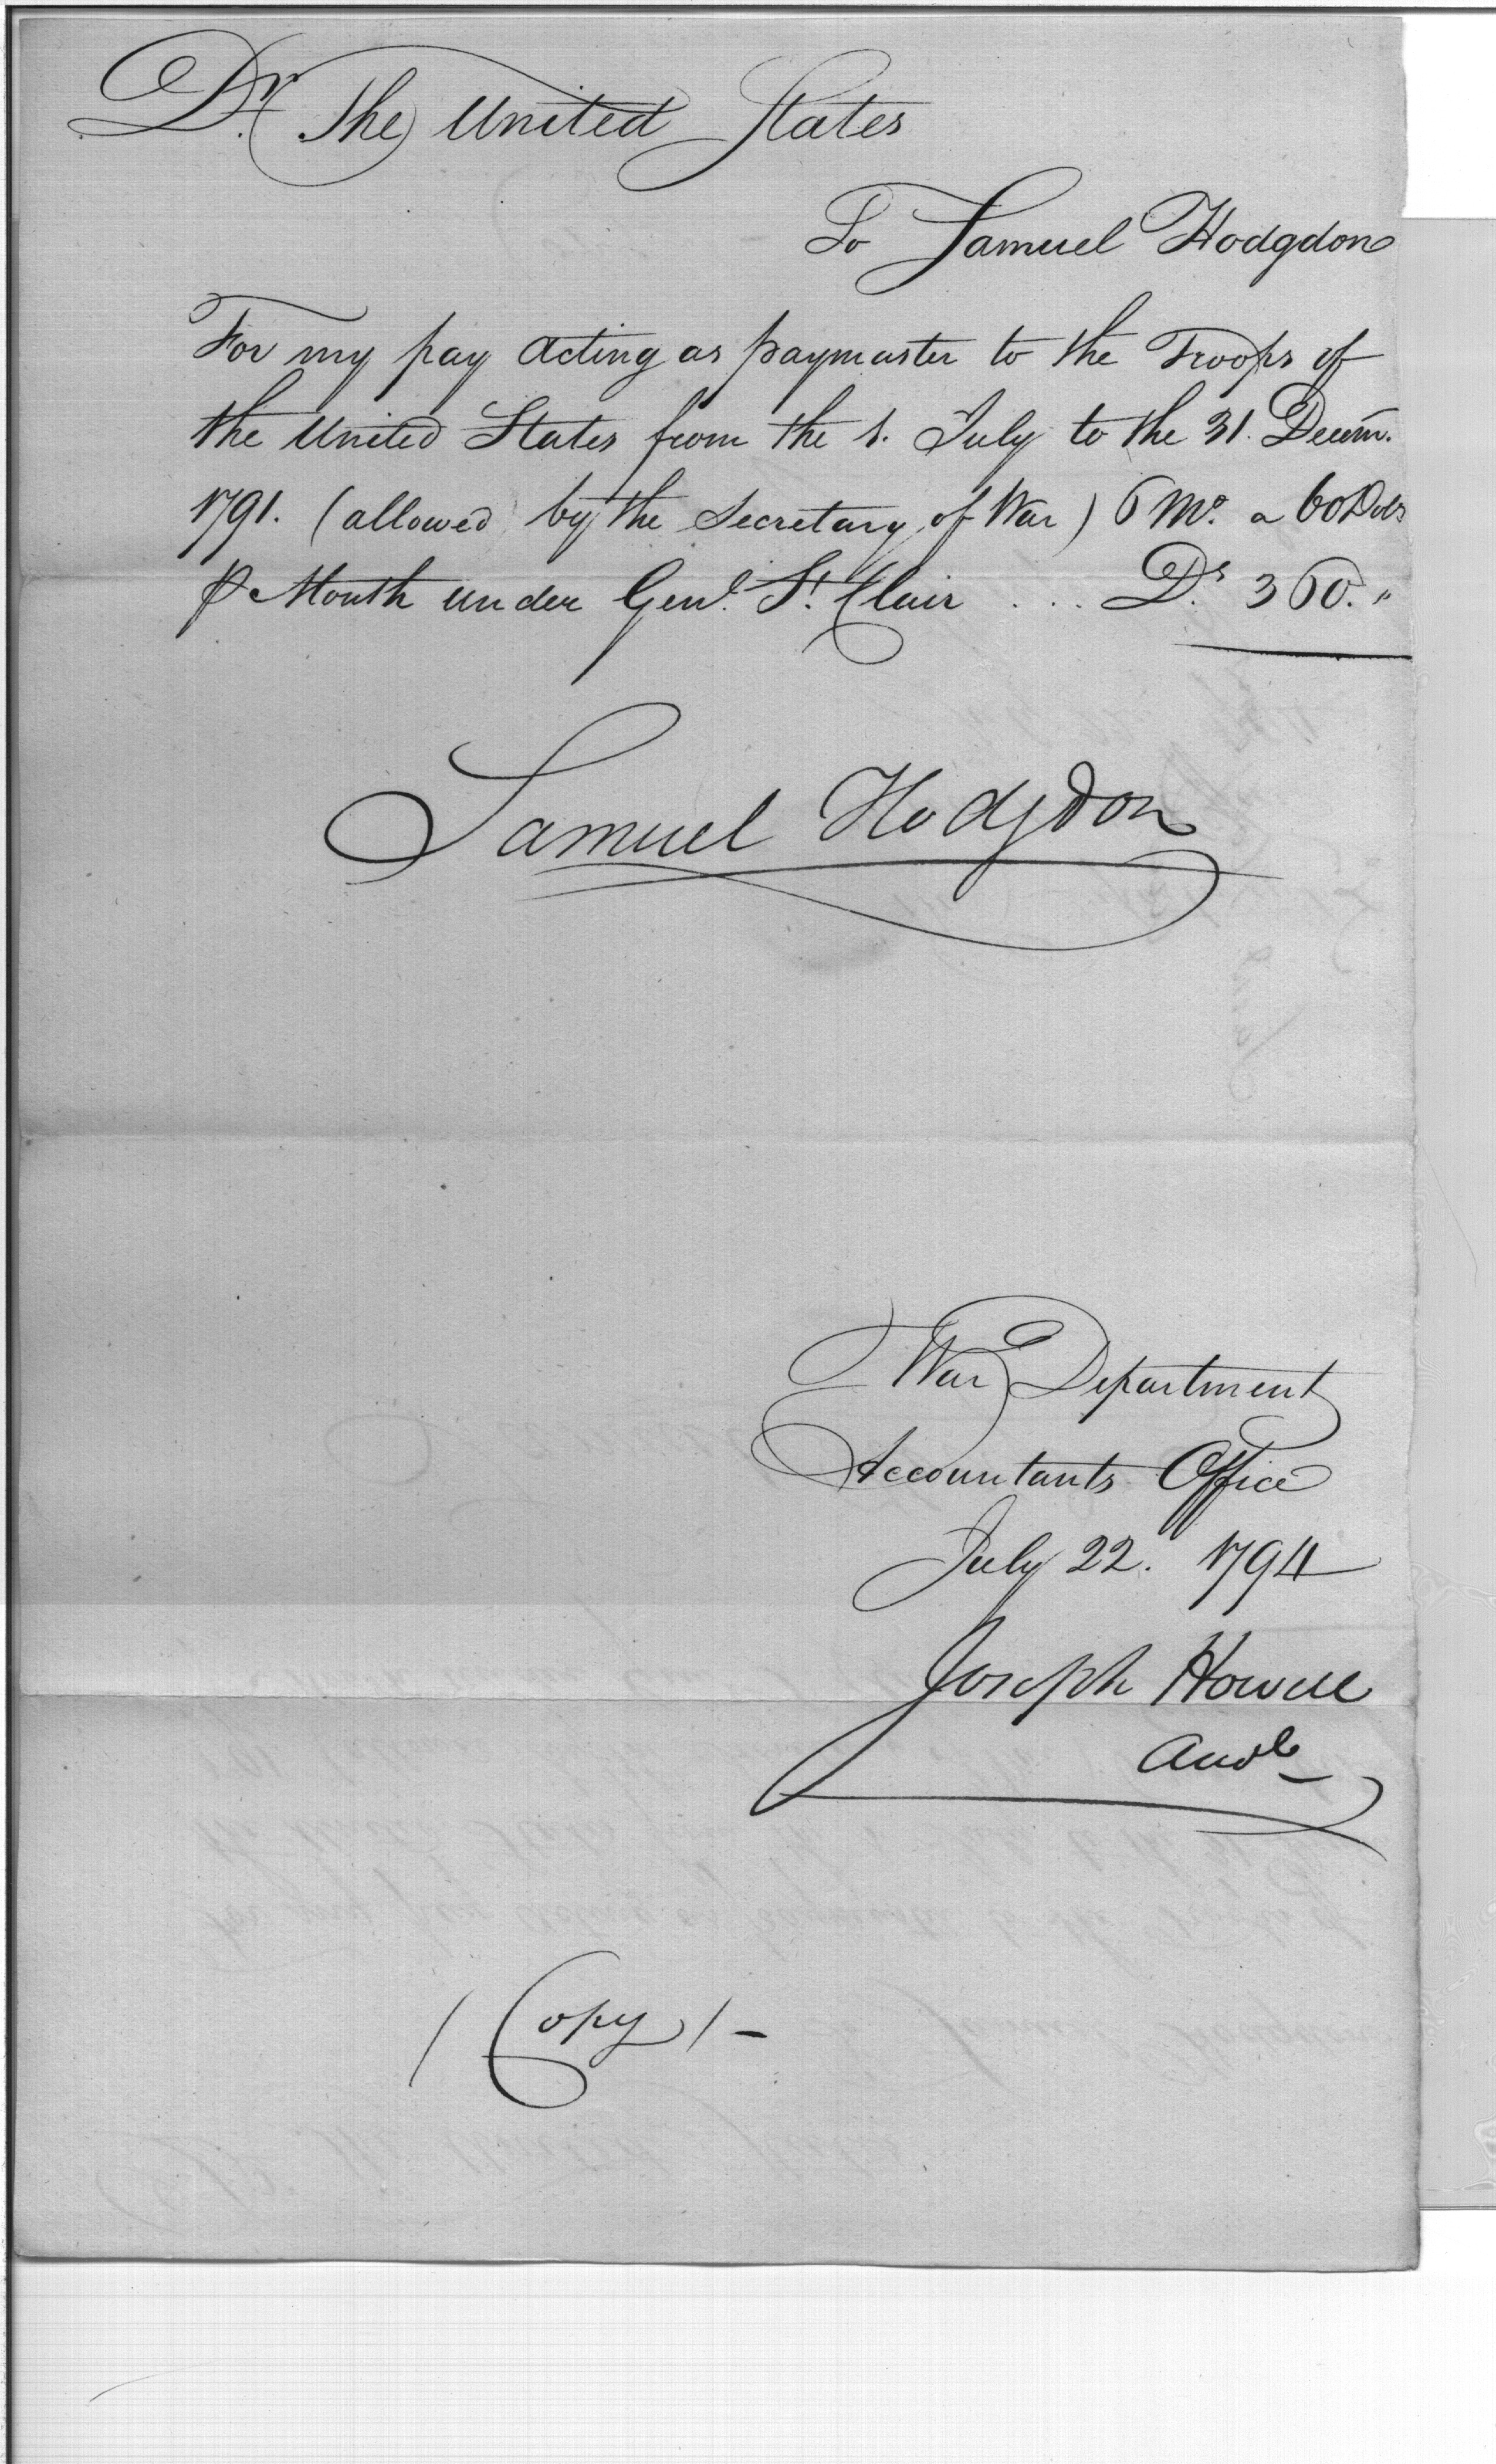 Dr. The United States
To Samuel Hodgdon
For my pay acting as paymaster to the Troops of
the United States from the 1. July to the 31. Decem.
1791. (allowed by the Secretary of War) 6 Mo. a 60 Dols
p Month under Genl. St. Clair . . . . Ds. 360. "
Samuel Hodgdon
War Department
Accountants Office
July 22. 1794
Joseph Howell
/ Copy / -